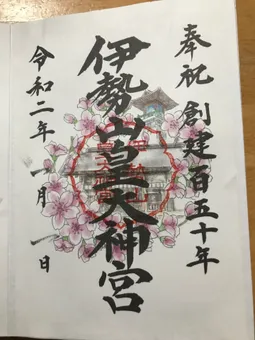 奉祝 創建百五十年
伊勢山皇大神宮
令和二年一月一日